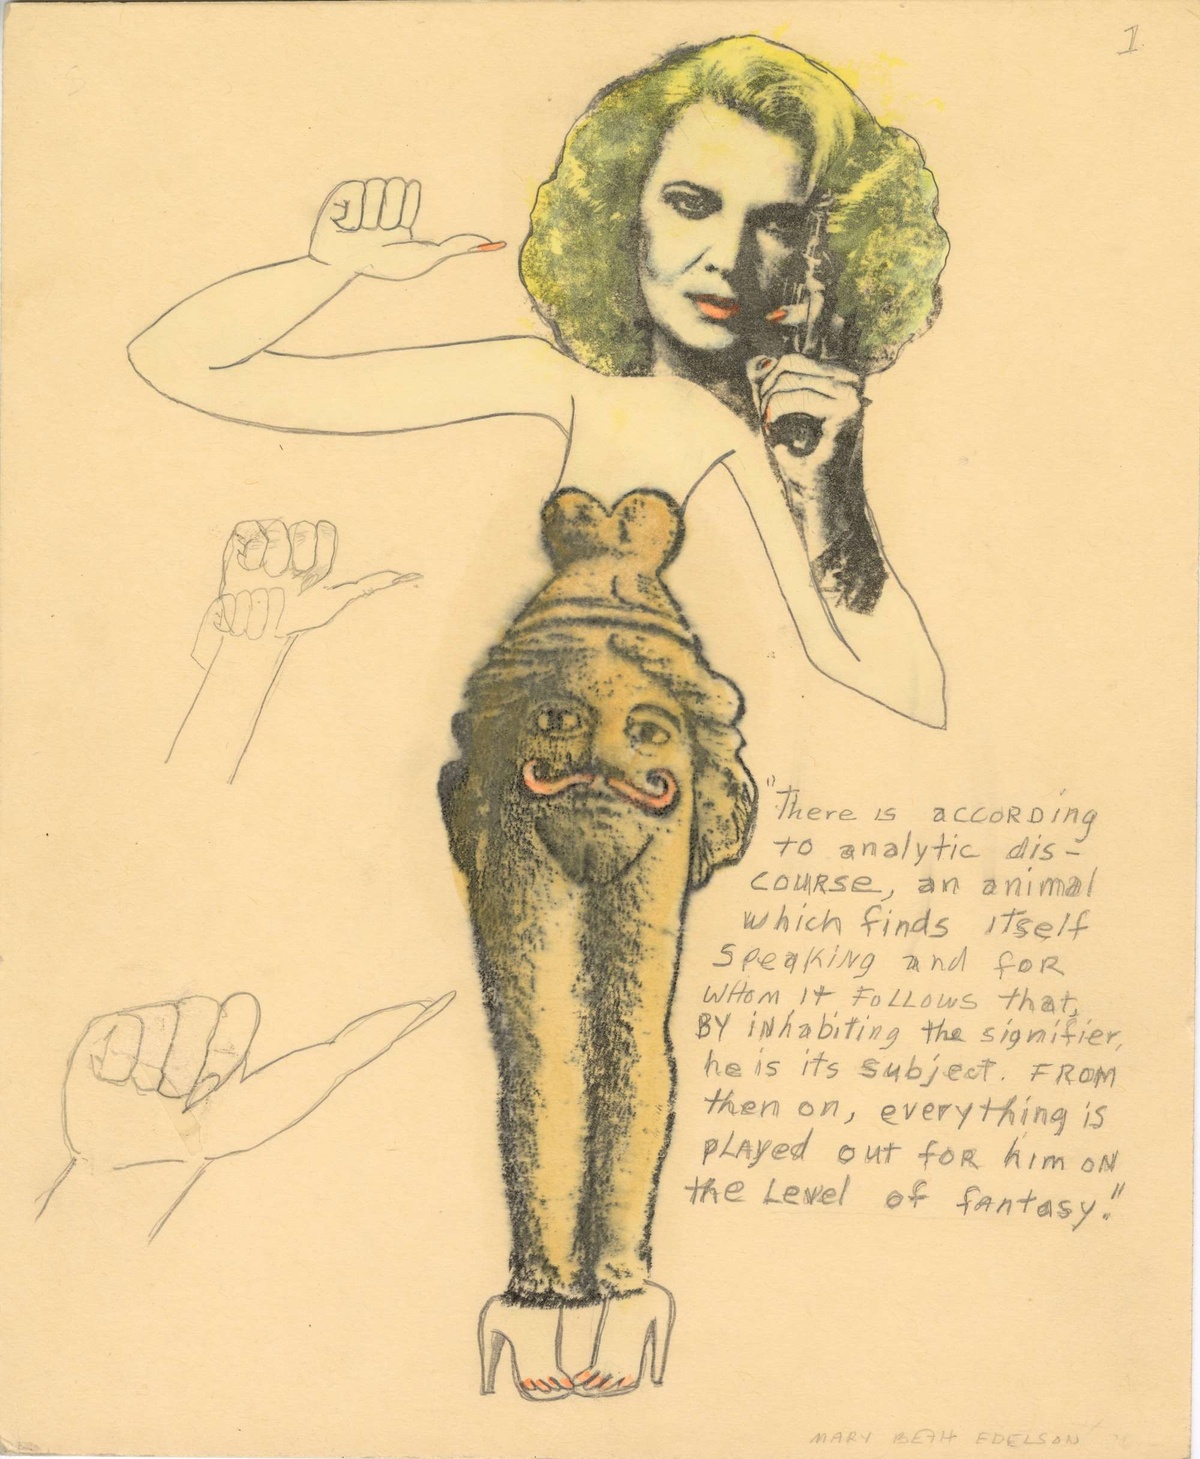 1
"There is ACCORDing
to analytic dis-
COURSE, an animal
which finds itself
SpeaKiNg and foR
WHom It FoLLows that,
BY iNhabiting the signifier,
he is its subject. FROM
then on, everything is
pLAyed out foR him oN
the Level of fantasy."
MARY BETH EDELSON